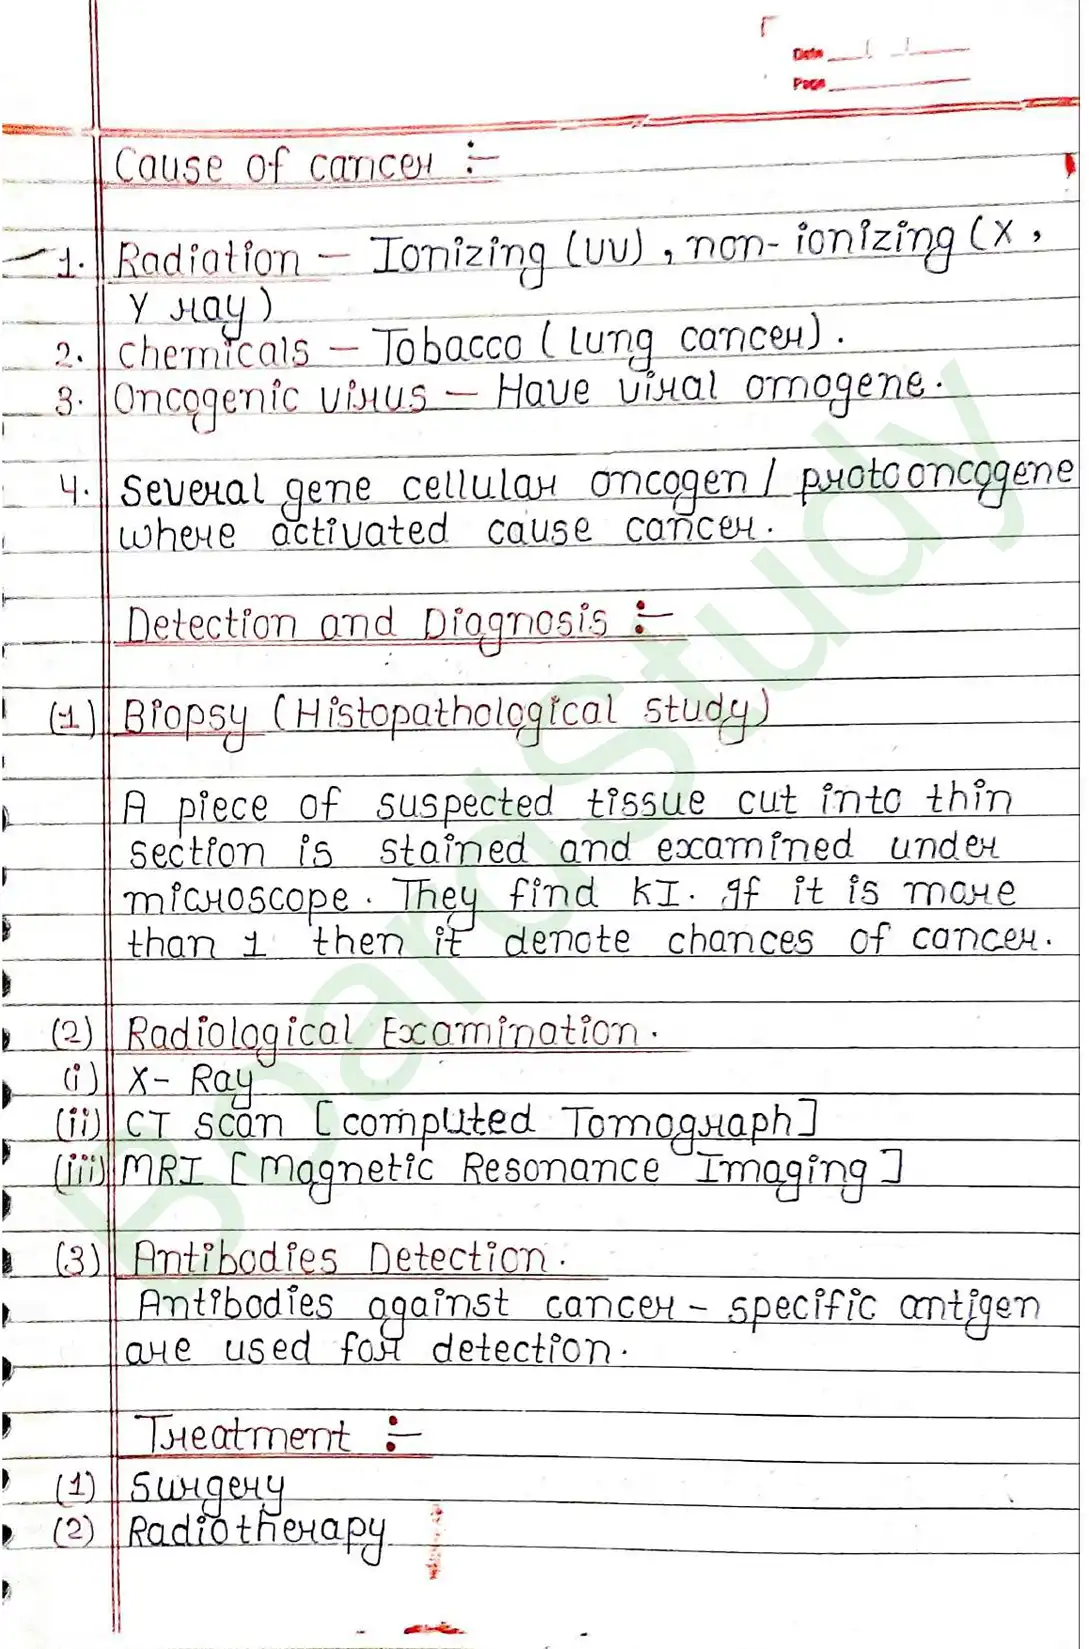 Date
Page
Cause of cancer :-
1. Radiation - Ionizing (UV), non-ionizing (X,
Y ray)
2. Chemicals - Tobacco (lung cancer).
3. Oncogenic virus - Have viral omogene.
4. Several gene cellular oncogen / protooncogene
where activated cause cancer.
Detection and Diagnosis :-
(1) Biopsy (Histopathological study)
A piece of suspected tissue cut into thin
section is stained and examined under
microscope. They find KI. If it is more
than 1 then it denote chances of cancer.
(2) Radiological Examination.
(i) X-Ray
(ii) CT scan [computed Tomograph]
(iii) MRI [Magnetic Resonance Imaging]
(3) Antibodies Detection.
Antibodies against cancer - specific antigen
are used for detection.
Treatment :-
(1) Surgery
(2) Radiotherapy
BoardStudy